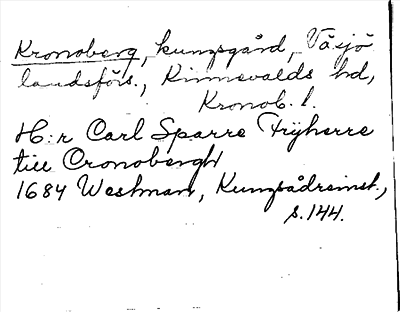 Kronoberg, kungsgård, Växjö
landsförs., Kinnevalds hd,
Kronob. l.
H:r Carl Sparre Frÿherre
till Cronobergh
1684 Westman, Kungsådreinst.,
s. 144.